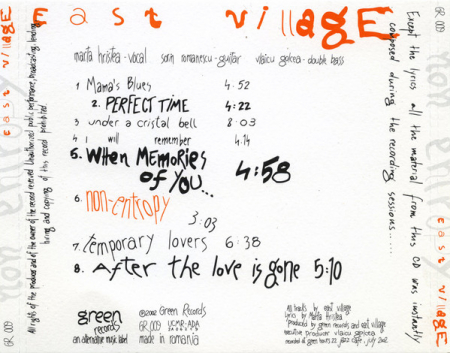 East Village
marta hristea - vocal sorin romanescu - guitar vlaicu golcea - double bass
1 Mama's Blues 4:52
2. PERFECT TIME 4:22
3 under a cristal bell 8:03
4 I will remember 4:14
5. When Memories of You... 4:58
6. non-entropy 3:03
7. temporary lovers 6:38
8. After the love is gone 5:10
green records
an alternative music label
©2002 Green Records
GR 009 UCMR-ADA
made in romania
All tracks by east village
Lyrics by Marta Hristea
Produced by green records and east village
executive producer vlaicu golcea
recorded at green hours 22 jazz cafe, july 2002
Except the lyrics all the material from this CD was instantly
composed during the recording sessions.....
All rights of the producer and of the owner of the record reserved. Unauthorized public performance, broadcasting, lending,
hiring and copying of this record prohibited
GR 009
east village
GR 009
GR 009
east village